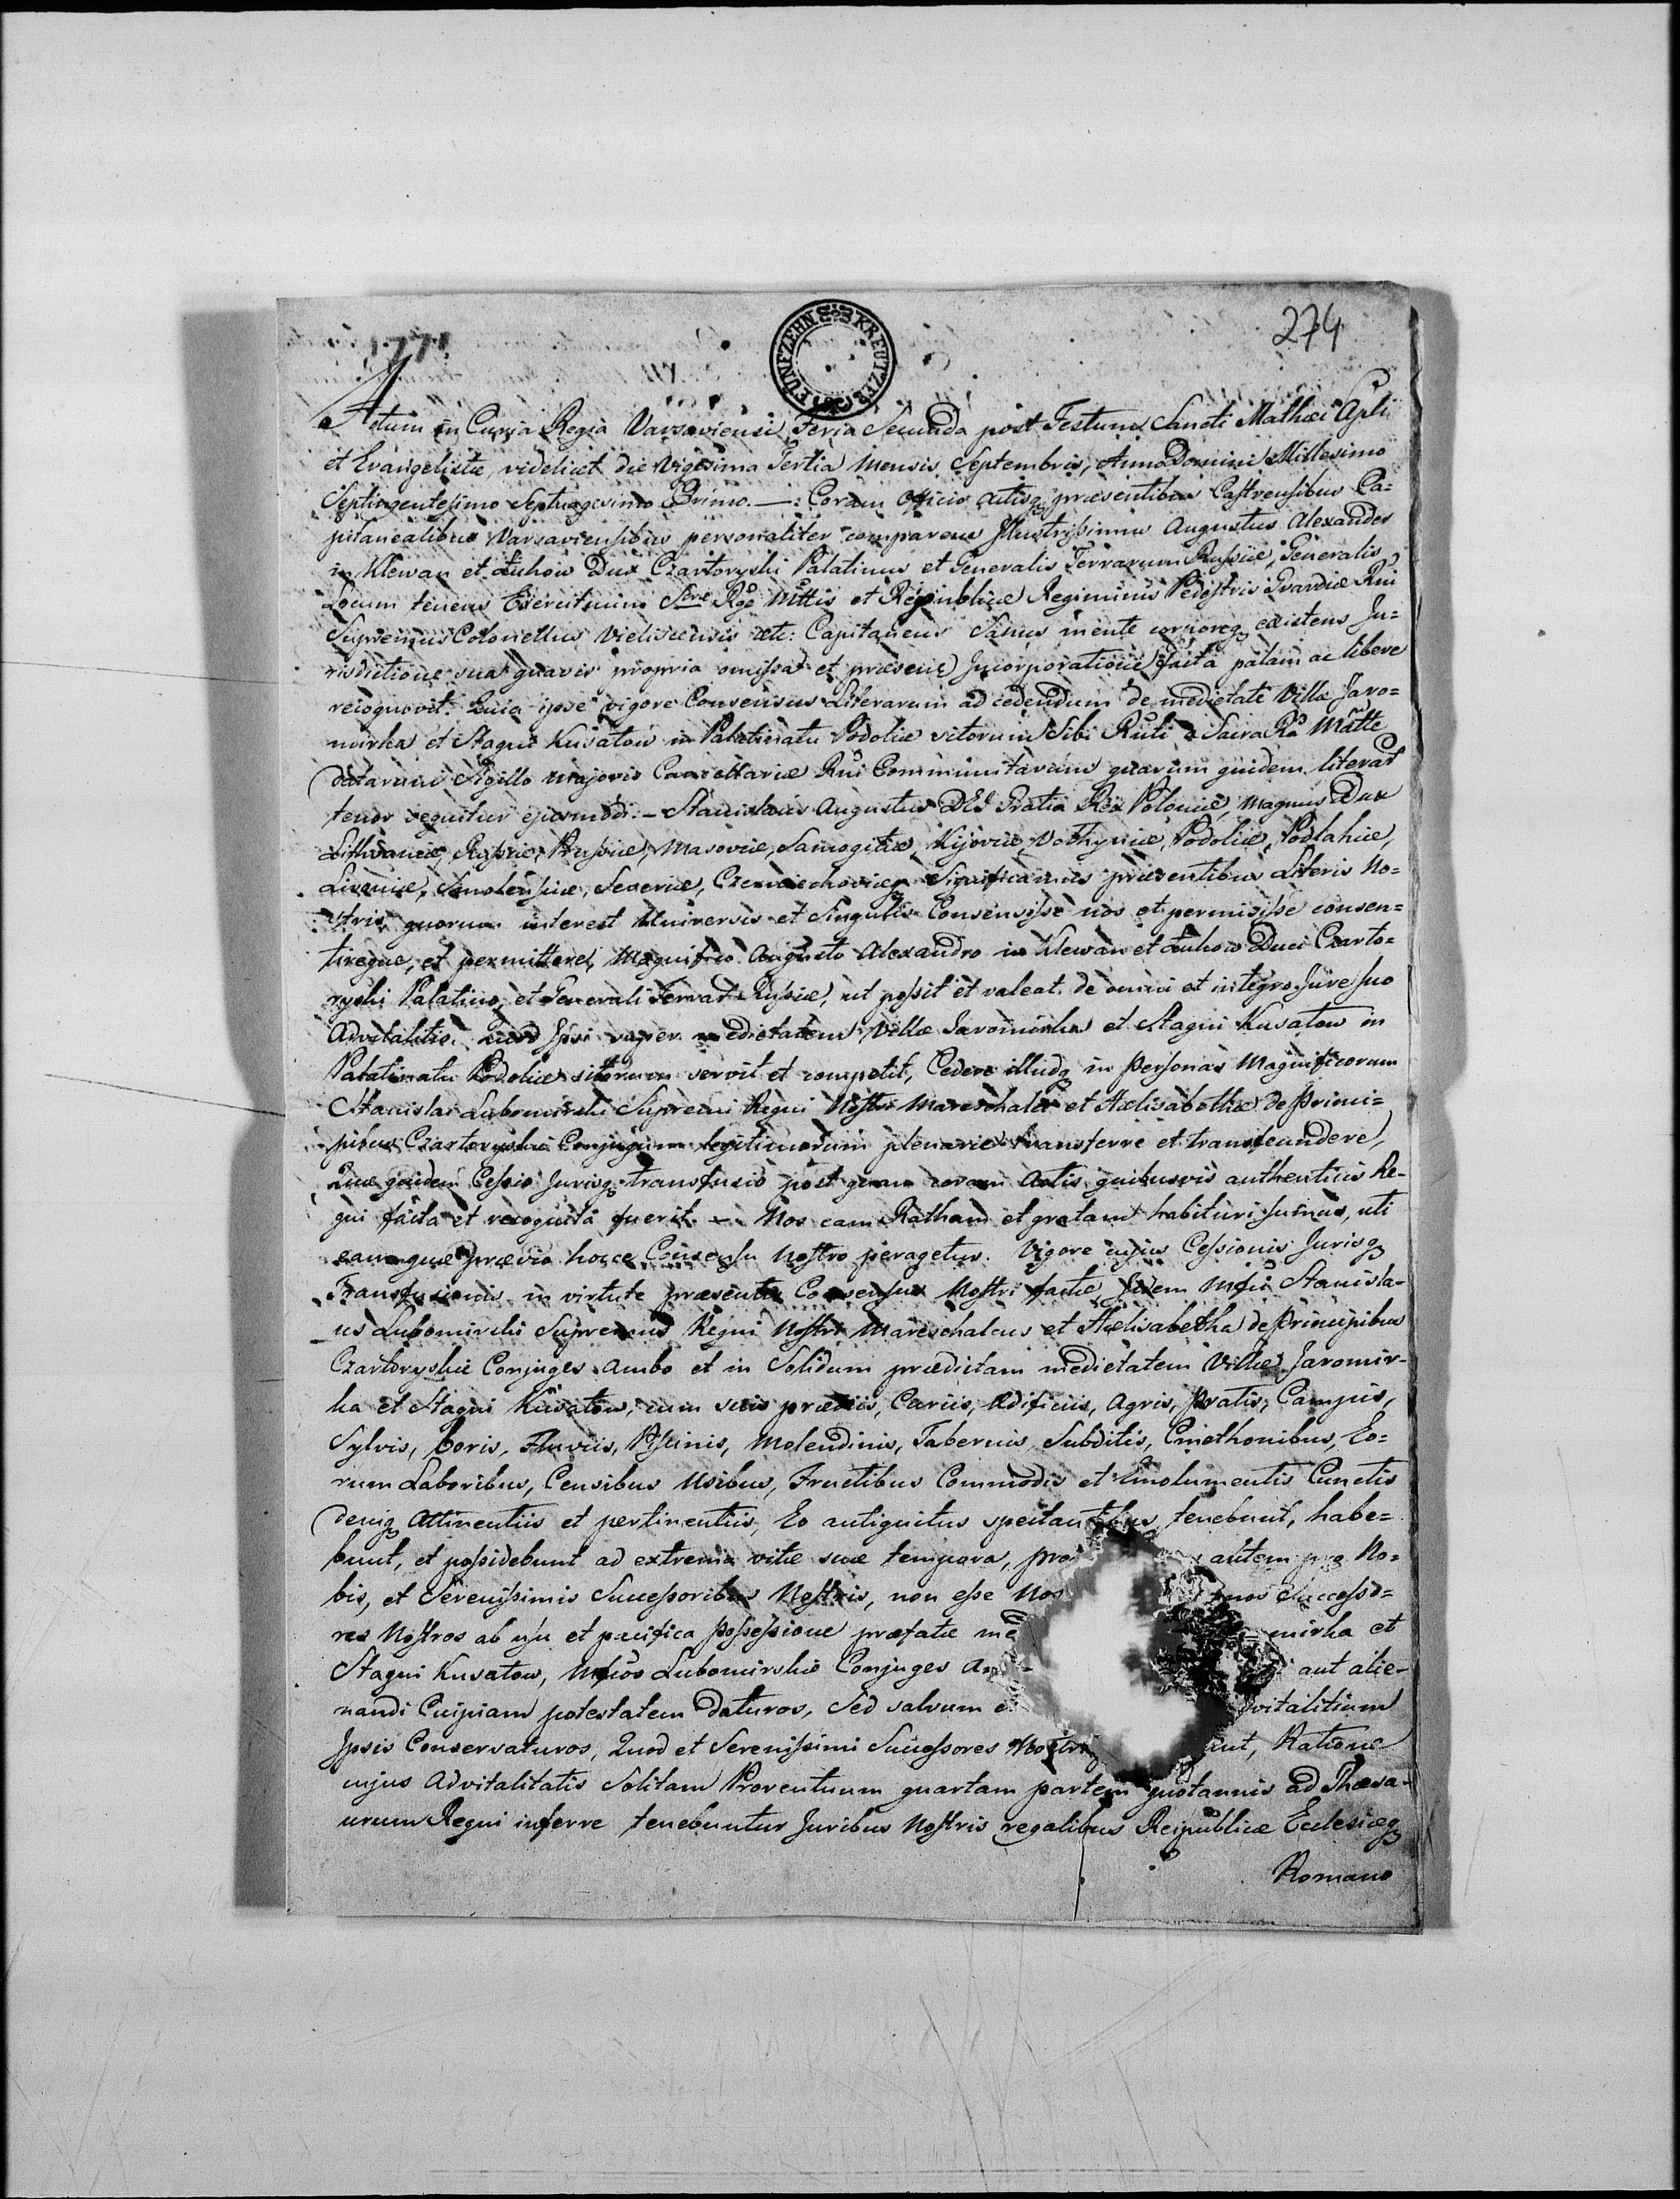 1771
FUNFZEHN KREUTZER
274
Actum in Curia Regia Varsaviensi Feria Secunda post Festum Sancti Mathæi Apli
et Evangelistæ, videlicet die Vigesima Tertia Mensis Septembris, Anno Domini Millesimo
Septingentesimo Septuagesimo Primo. —: Coram Officio Actisq præsentibus Castrensibus Ca=
pitanealibus Varsaviensibus personaliter comparens Illustrissimus Augustus Alexander
in Klewan et Zukow Dux Czartoryski Palatinus et Generalis Terrarum Russiæ, Generalis
Locum tenens Exercituum Sacræ Rgæ Mttis et Reipublicæ Regiminis Pedestris Gvardiæ Rni
Supremus Colonellus Vielunensis etc: Capitaneus Sanus mente corporeq existens Ju=
risdictione sua quavis propria omissa et præsenti Incorporatione facta palam ac libere
recognovit. Quia ipse vigore Consensus Literarum ad cedendum de medietate Villæ Jaro=
mirka et Stagni Kusatow in Palatinatu Podoliæ sitorum Sibi Rnti a Sacra Ra Matte
datarum Sigillo majoris Cancellariæ Rni Communitarum quarum quidem literar
tenor sequitur ejusmodi: — Stanislaus Augustus DEI Gratia Rex Poloniæ, Magnus Dux
Lithvaniæ, Russiæ, Prussiæ, Masoviæ, Samogitiæ, Kijoviæ, Volhyniæ, Podoliæ, Podlahiæ,
Livoniæ, Smolensiæ, Severiæ, Czerniechoviæq Significamus præsentibus Literis No=
stris quorum interest Universis et Singulis Consensisse nos et permisisse consen=
tireque, et permittere, Magnifico Augusto Alexandro in Klewan et Zukow Duci Czarto=
ryski Palatino, et Generali Terrar Russiæ, ut possit et valeat de omni et integro Jure suo
Advitalitio. Quod Ipsi super medietatem Villæ Jaromirka et Stagni Kusatow in
Palatinatu Podoliæ sitorum servit et competit, Cedere illudq in Personas Magnificorum
Stanislai Lubomirski Supremi Regni Nostri Mareschalci et Hælisabethæ de Princi=
pibus Czartoryskie Conjugum legitimorum plenarie transferre et transfundere,
Quæ quidem Cessio Jurisq transfusio post quam coram Actis quibusvis authenticis Re=
gni facta et recognita fuerit. — Nos eam Ratham et gratam habituri sumus, uti
eam quæ prævio hocce Consensu Nostro peragetur. Vigore cujus Cessionis Jurisq
Transfusionis in virtute præsentis Consensus Nostri factæ, Iidem Mfci Stanisla-
us Lubomirski Supremus Regni Nostri Mareschalcus et Hælisabetha de Principibus
Czartoryskie Conjuges ambo et in Solidum prædictam medietatem Villæ Jaromir-
ka et Stagni Kusatow, cum suis prædiis, Curiis, Ædificiis, Agris, Pratis, Campis,
Sylvis, boris, Fluviis, Piscinis, Molendinis, Tabernis, Subditis, Cmethonibus, Eo=
rum Laboribus, Censibus Usibus, Fructibus Commodis et Emolumentis Cunctis
deniq Attinentiis et pertinentiis, Eo antiquitus spectantibus, tenebunt, habe=
bunt, et possidebunt ad extrema vitæ suæ tempora, autem pro No=
bis, et Serenissimis Successoribus Nostris, non esse Nos Successo=
res Nostros ab usu et pacifica Possessione præfatæ me mirka et
Stagni Kusatow, Mfcos Lubomirskie Conjuges aut alie-
nandi Cuipiam potestatem daturos, Sed salvum e vitalitium
Ipsis Conservaturos, Quod et Serenissimi Successores Nostri unt, Ratione
cujus Advitalitatis Solitam Proventuum quartam partem quotannis ad Thesa-
urum Regni inferre tenebuntur Juribus Nostris regalibus Reipublicæ Ecclesiæq
Romano